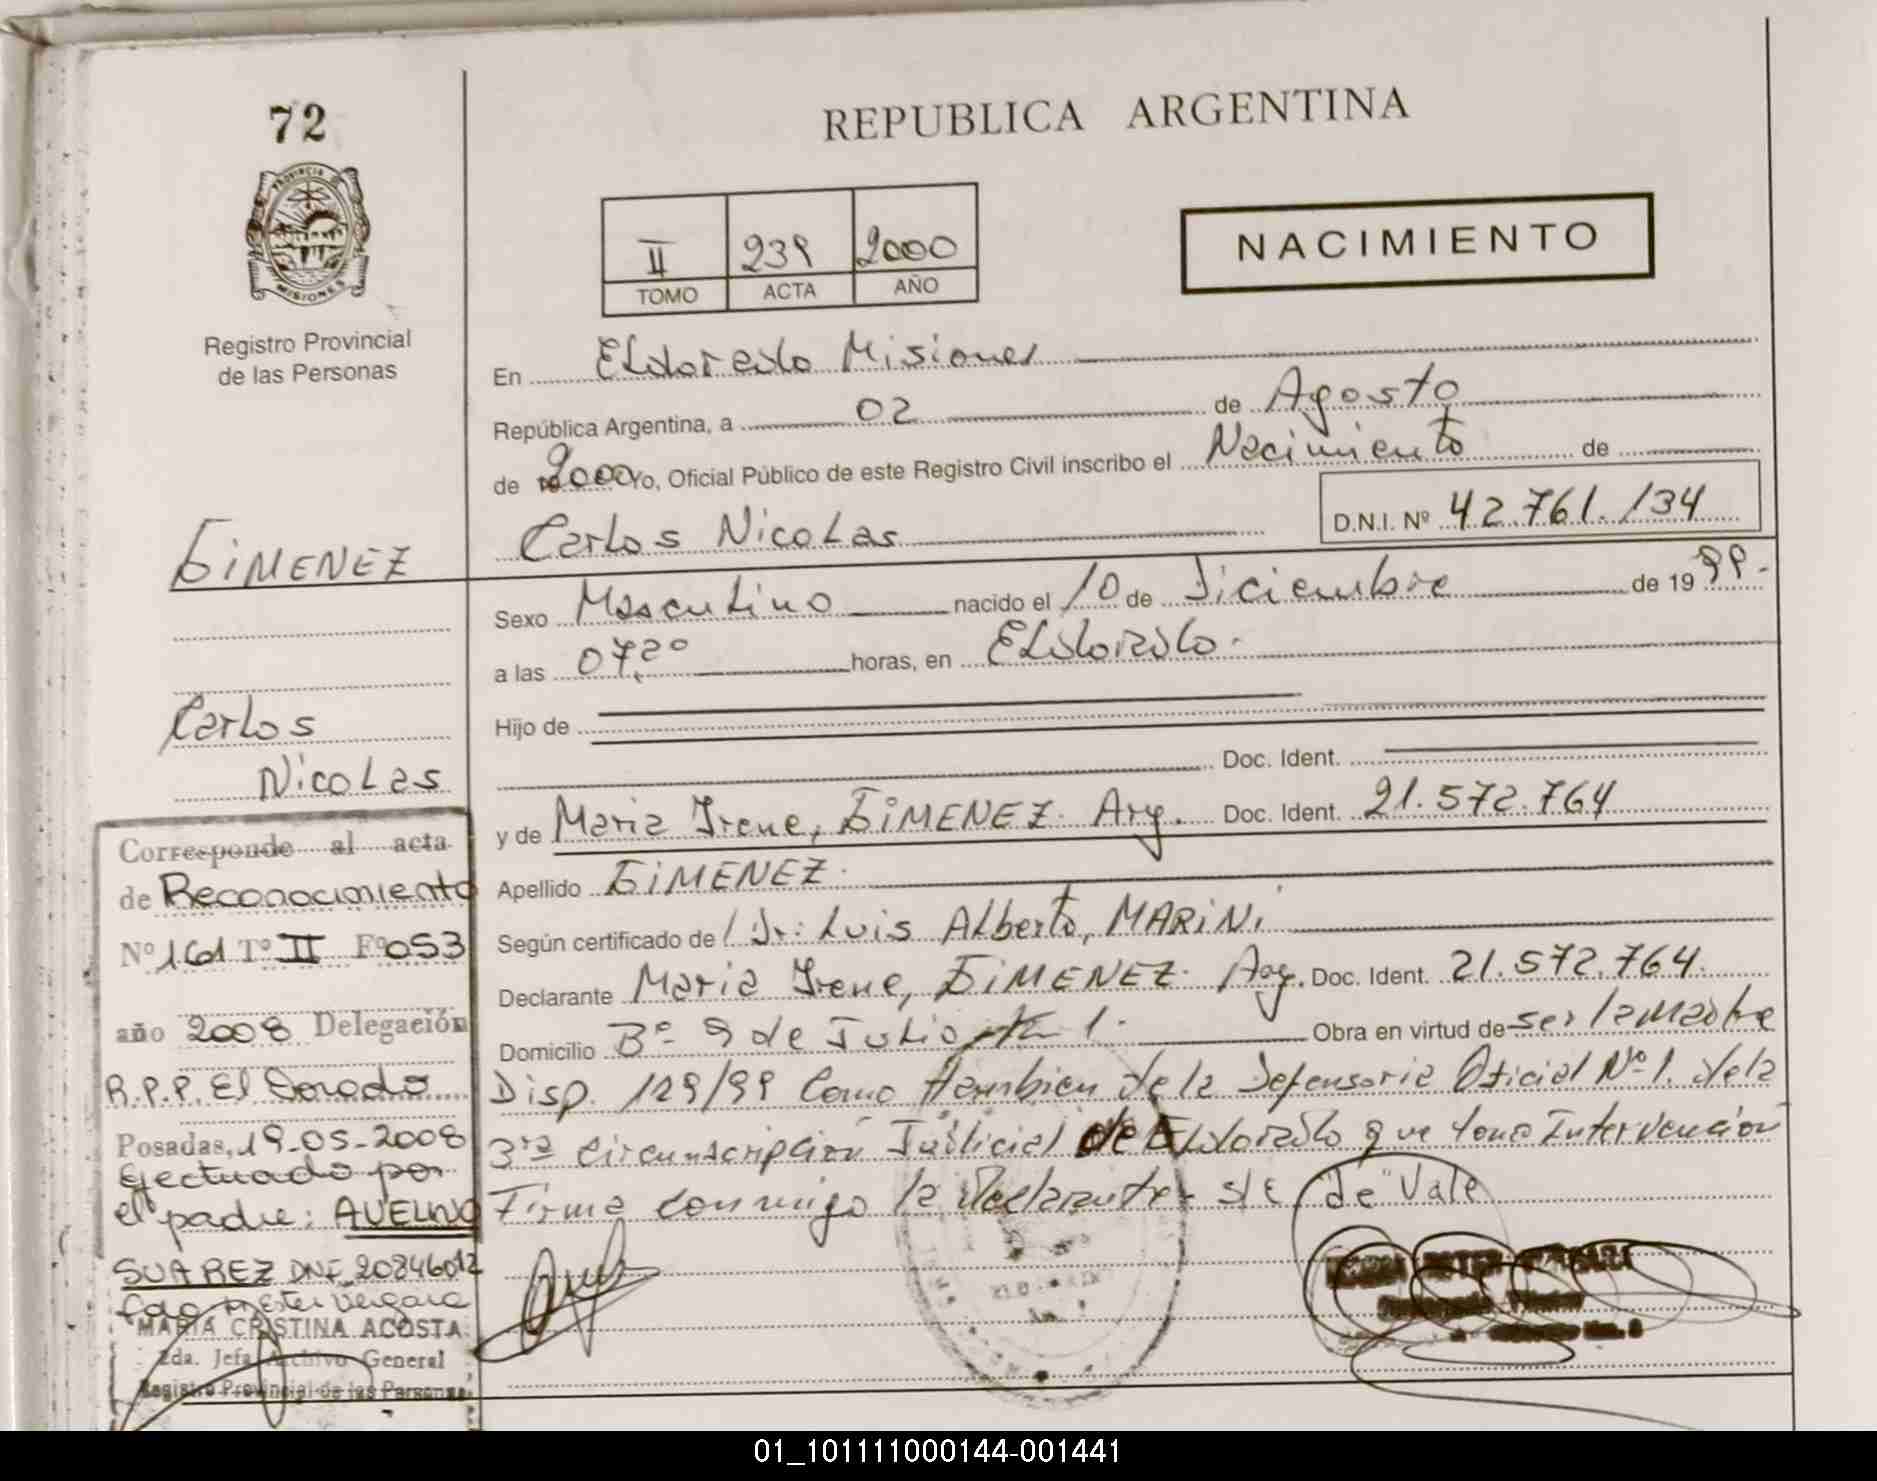 72
PROVINCIA DE
MISIONES
Registro Provincial
de las Personas
GiMENEZ
Carlos
Nicolas
Corresponde al acta
de Reconocimiento
Nº 161 Tº II Fº 053
año 2008 Delegación
R.P.P. El Dorado
Posadas, 19-05-2008
Efectuado por
el padre: AVELINO
SUAREZ DNI 20846012
Fdo M Ester Vergara
MARIA CRISTINA ACOSTA
2da. Jefa Archivo General
Registro Provincial de las Personas
REPUBLICA ARGENTINA
II 239 2000
TOMO ACTA AÑO
NACIMIENTO
En Eldorado Misiones
República Argentina, a 02 de Agosto
de 2000 Yo, Oficial Público de este Registro Civil inscribo el Nacimiento de
Carlos Nicolas D.N.I. Nº 42.761.134
Sexo Masculino nacido el 10 de Diciembre de 19 99.-
a las 07,20 horas, en Eldorado.
Hijo de
Doc. Ident.
y de Maria Irene, GiMENEZ. Arg. Doc. Ident. 21.572.764
Apellido GiMENEZ.
Según certificado de Dr: Luis Alberto, MARiNi
Declarante Maria Irene, GiMENEZ. Arg. Doc. Ident. 21.572.764.
Domicilio Bº 9 de Julio 1. Obra en virtud de ser la madre
Disp. 129/99 Como tambien de la Defensoria Oficial Nº 1. de la
3ra Circunscripción Judicial de Eldorado que toma Intervención
Firma conmigo la declarante. s/e "de" Vale
01_101111000144-001441